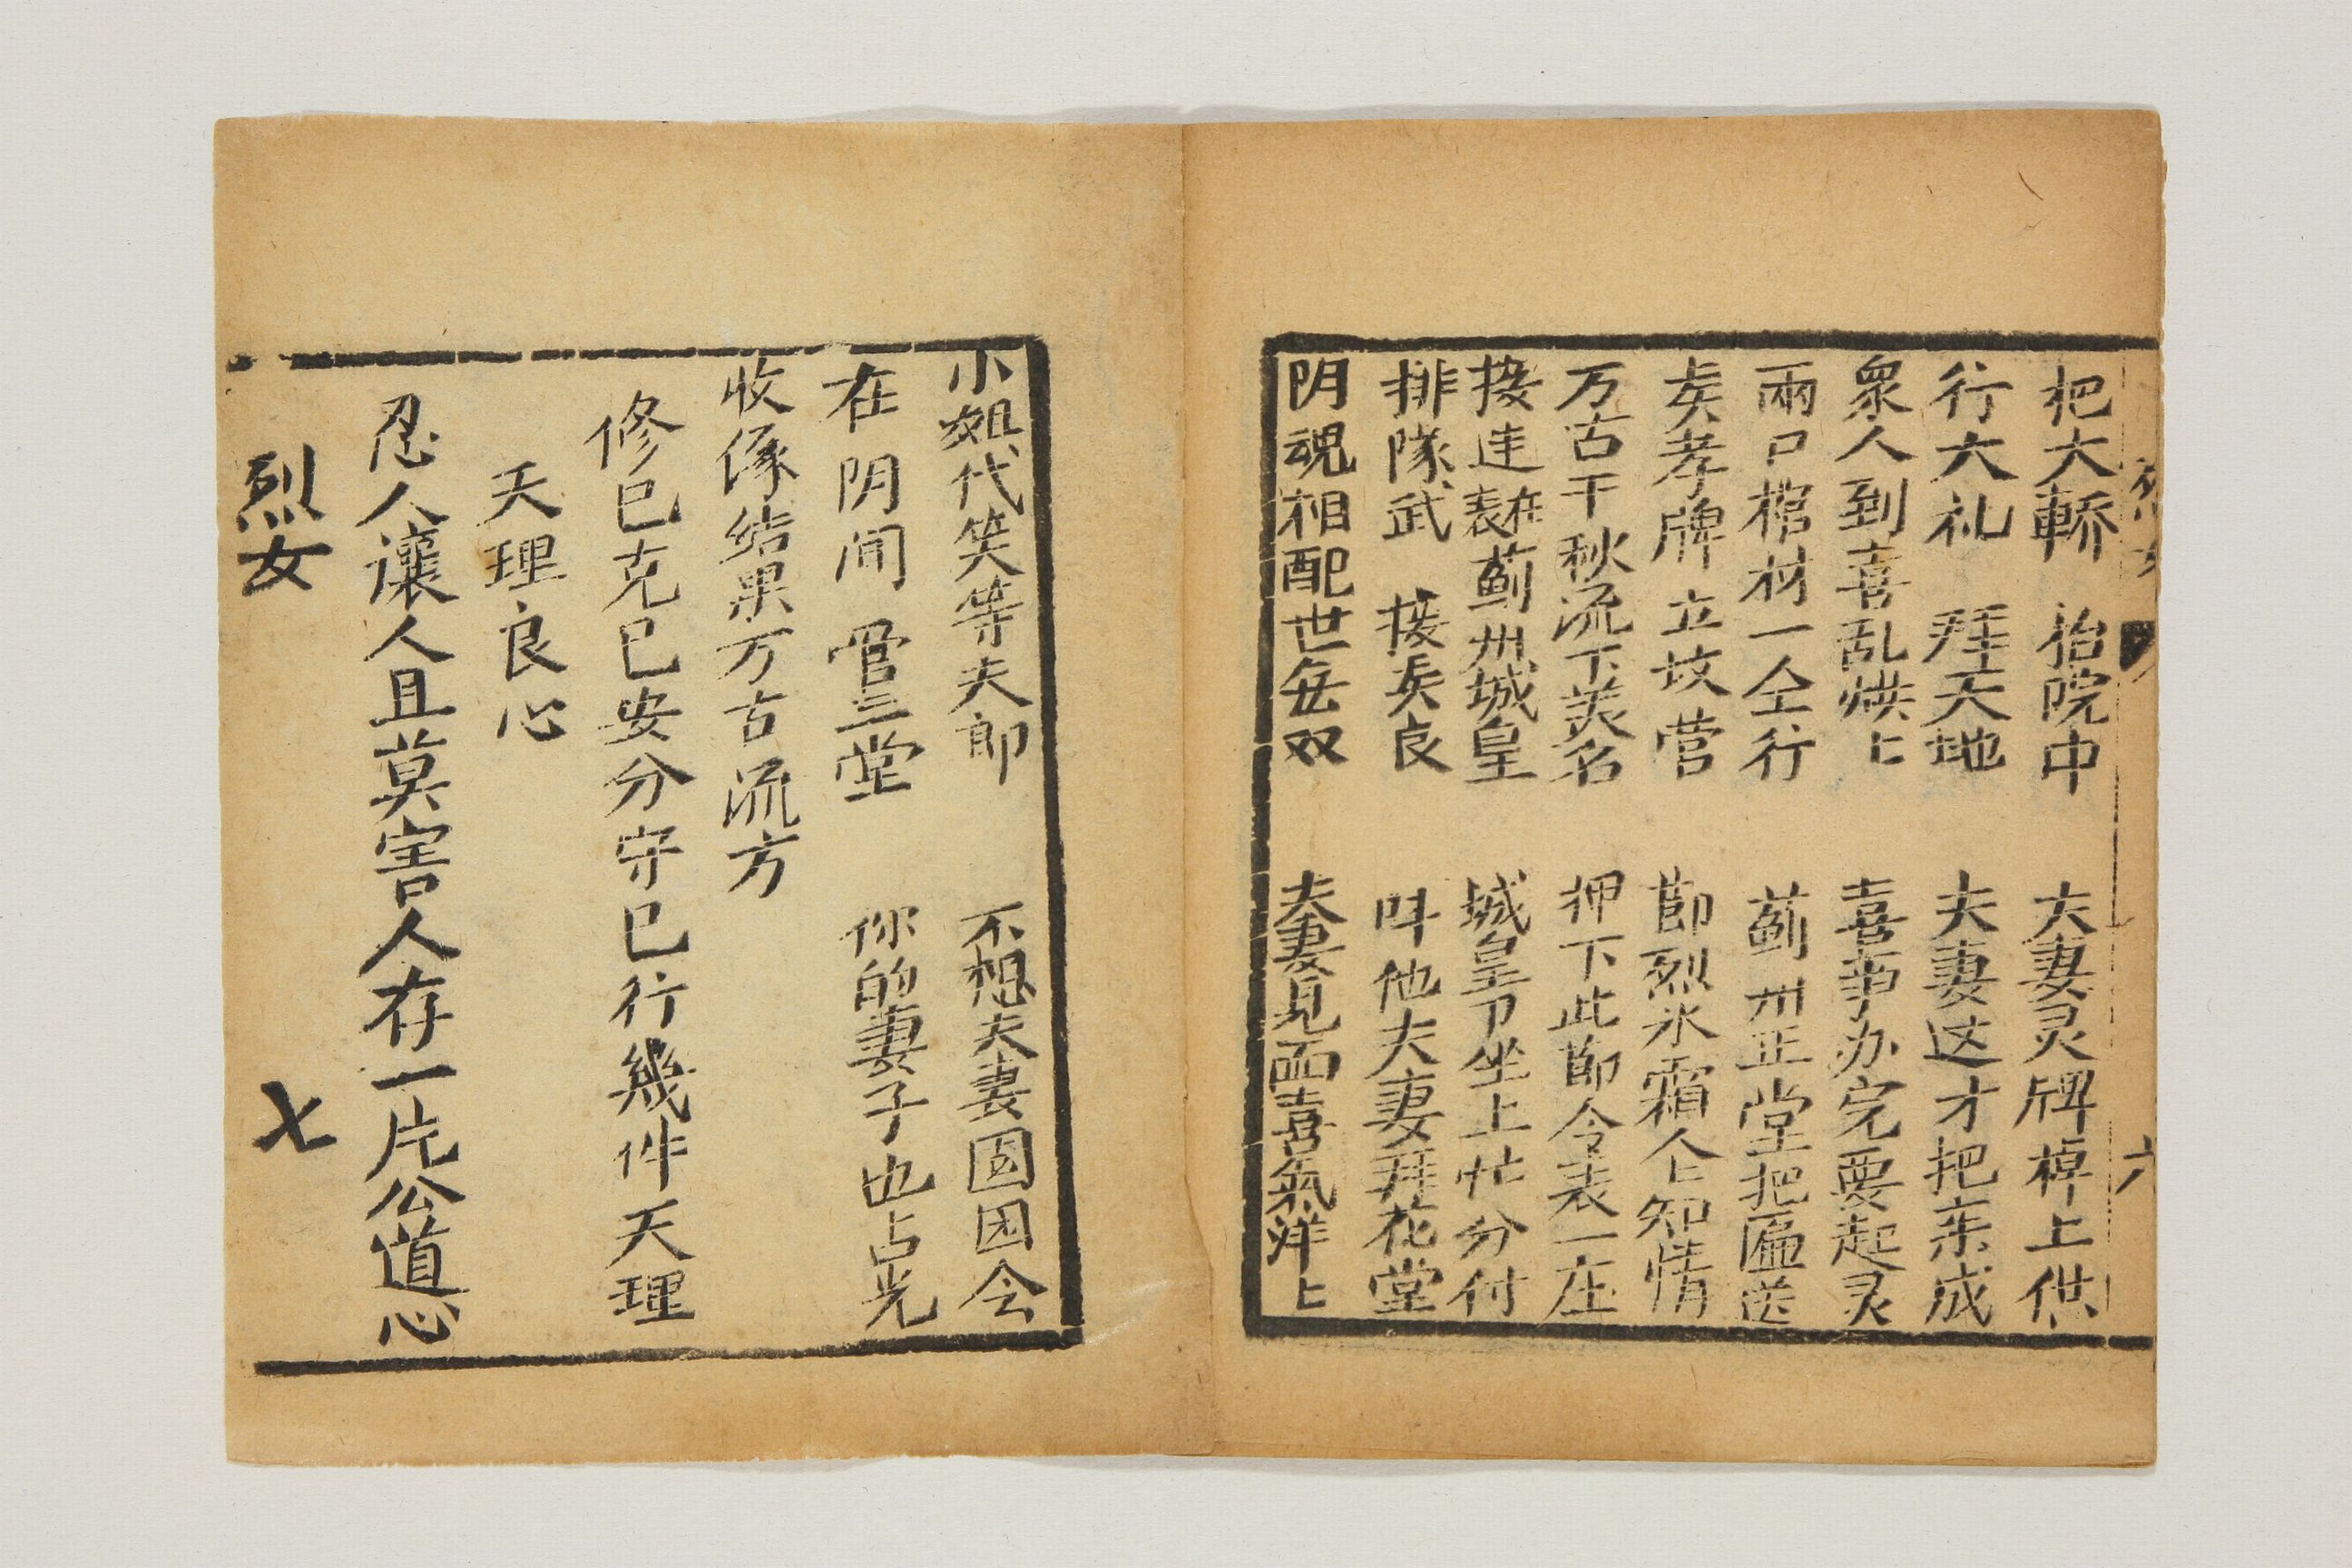 把大轎 抬院中 夫妻灵牌棹上供
行大礼 拜天地 夫妻这才把亲成
衆人到喜乱烘上 喜事办完要起灵
兩口棺材一仝行 薊州正堂把匾送
孝牌 立坟营 節烈氷霜人上知情
万古千秋流下美名 押下此節今表一庄
接连表在薊州城皇 城皇爷坐上忙分付
排隊武 接 良 呌他夫妻拜花堂
阴魂相配世無双 夫妻見面喜氣洋上
小姐代笑等夫郎 不想夫妻固因会
在阴间 管三堂 你的妻子也占光
收缘结果万古流方
修已克已安分守已行幾件天理
天理良心
忍人讓人且莫害人存一片公道心
烈女 七